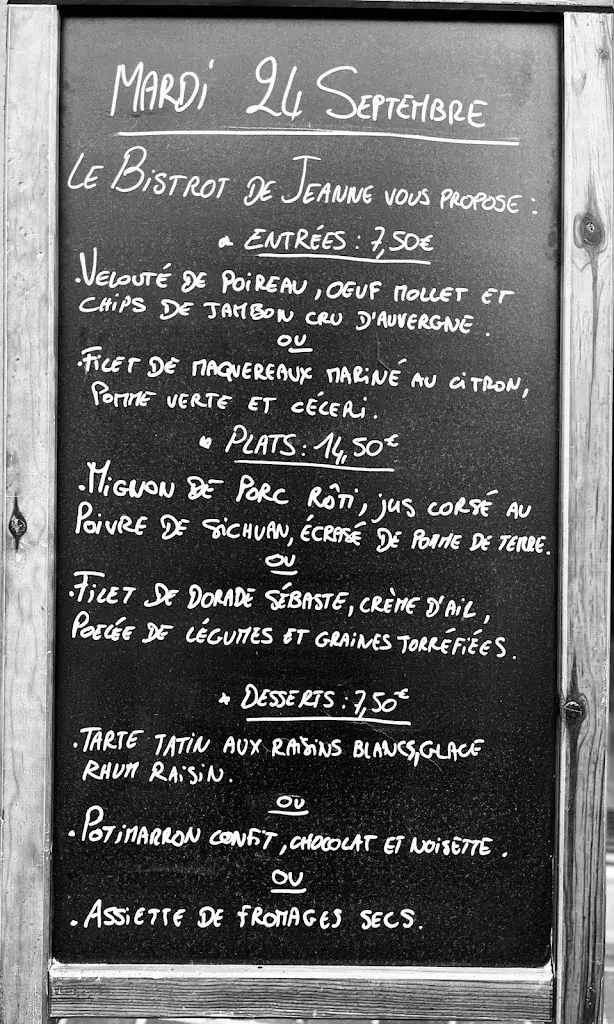 MARDI 24 SEPTEMBRE
LE BISTROT DE JEANNE VOUS PROPOSE :
* ENTRÉES : 7,50€
. VELOUTÉ DE POIREAU, OEUF MOLLET ET
CHIPS DE JAMBON CRU D'AUVERGNE .
OU
. FILET DE MAQUEREAUX MARINÉ AU CITRON,
POMME VERTE ET CÉCERI .
* PLATS : 14,50€
. MIGNON DE PORC RÔTI, JUS CORSÉ AU
POIVRE DE SICHUAN, ÉCRASÉ DE POMME DE TERRE.
OU
. FILET DE DORADE SÉBASTE, CRÈME D'AIL,
POELÉE DE LÉGUMES ET GRAINES TORRÉFIÉES .
* DESSERTS : 7,50€
. TARTE TATIN AUX RAISINS BLANCS, GLACE
RHUM RAISIN .
OU
. POTIMARRON CONFIT, CHOCOLAT ET NOISETTE .
OU
. ASSIETTE DE FROMAGES SECS .